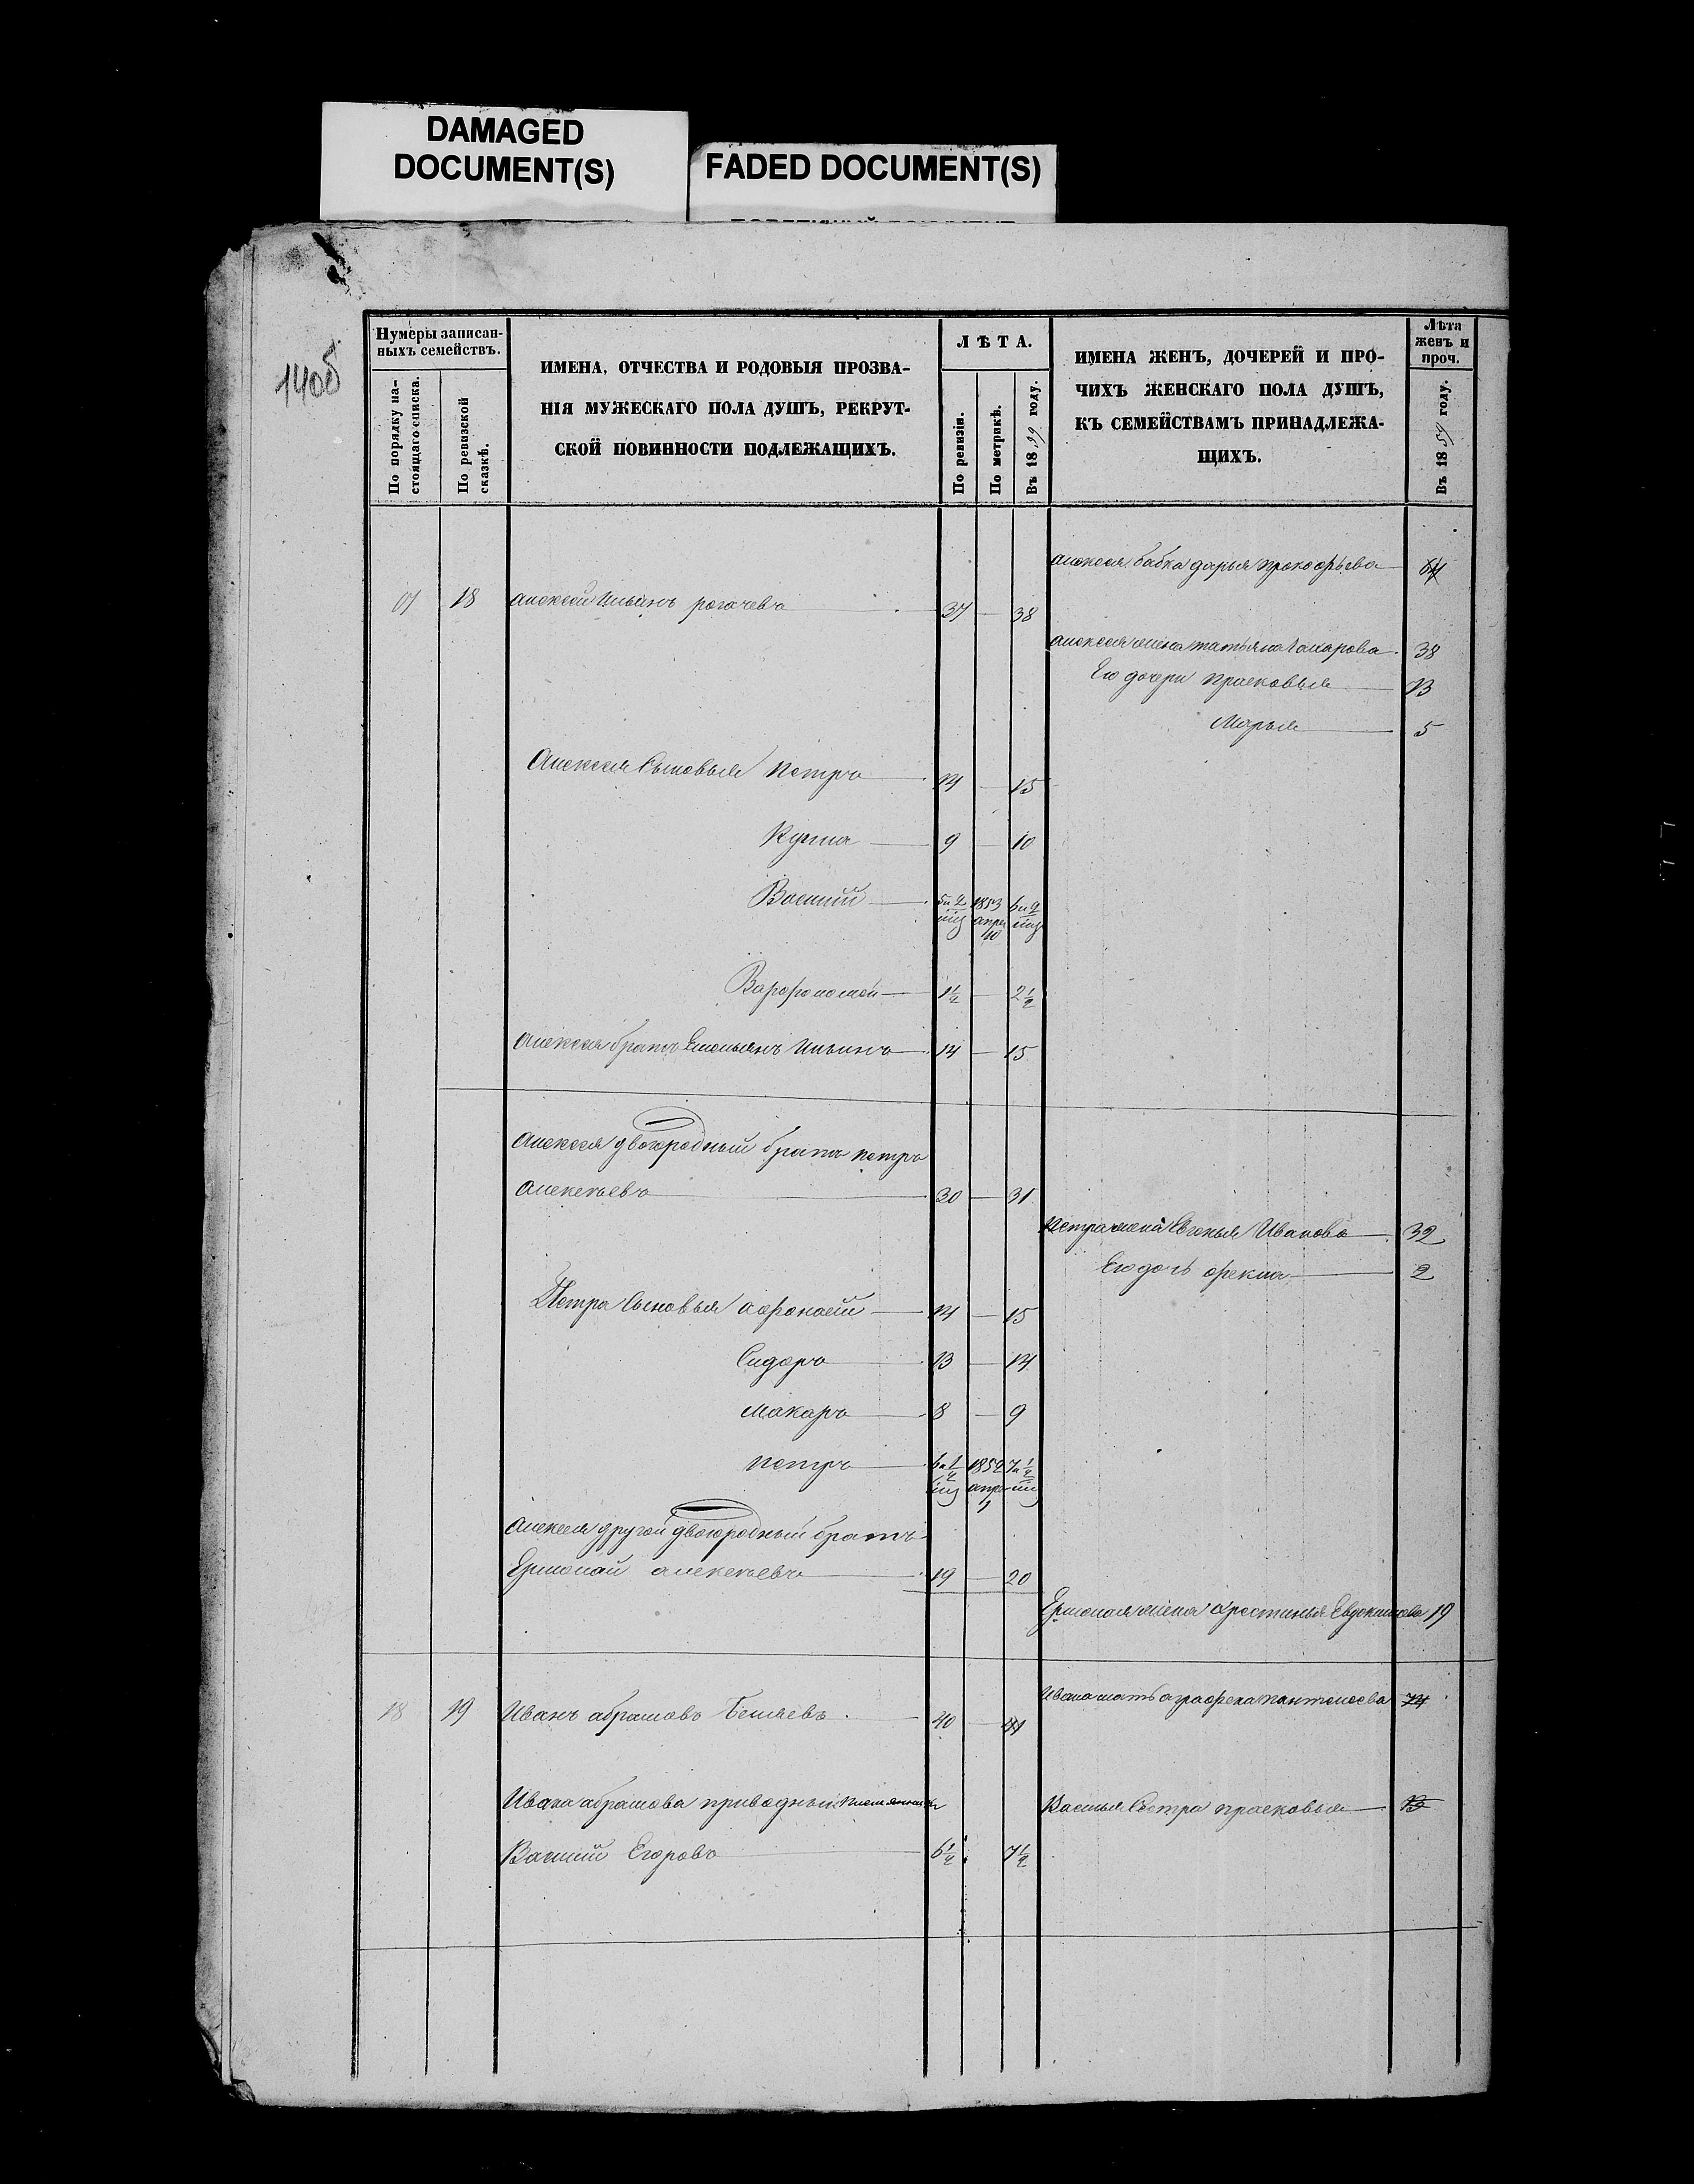 DAMAGED
DOCUMENT(S)
FADED DOCUMENT(S)
140б
Нумеры записан-
ныхъ семействъ.
По порядку на-
стоящаго списка.
По ревизской
сказкѣ.
ИМЕНА, ОТЧЕСТВА И РОДОВЫЯ ПРОЗВА-
НІЯ МУЖЕСКАГО ПОЛА ДУШЪ, РЕКРУТ-
СКОЙ ПОВИННОСТИ ПОДЛЕЖАЩИХЪ.
ЛѢТА.
По ревизіи.
По метрикѣ.
Въ 1859 году.
ИМЕНА ЖЕНЪ, ДОЧЕРЕЙ И ПРО-
ЧИХЪ ЖЕНСКАГО ПОЛА ДУШЪ,
КЪ СЕМЕЙСТВАМЪ ПРИНАДЛЕЖА-
ЩИХЪ.
Лѣта
женъ и
проч.
Въ 1859 году.
алексея бабка дарья прокофьева
18 алексей Ильинъ рогачевъ 37 — 38
алексея жена татьяна Макарова 38
Его дочери прасковья 13
Марья 5
Алексея Сыновья петръ 14 — 15
Кузма 9 — 10
Василий 5 и 2 мц 1853 апрел 10 6 и 2 мц
Варфоломей 1 1/2 — 2 1/2
Алексея братъ Емельянъ Ильинъ 14 — 15
Алексея двоюродный братъ петръ
алексеевъ 30 — 31
Петра жена Евгенья Иванова 32
Его дочь фекла 2
Петра Сыновья афонасий 14 — 15
Сидоръ 13 — 14
Макаръ 8 — 9
петръ 6 и 1/2 мц 1852 апре 1 7 и 1/2 мц
Алексея другой двоюродный братъ
Ермолай алексеевъ 19 — 20
Ермолая жена Хрестинья Евдокимова 19
Ивана мать аграфена пантелеева 74
18 19 Иванъ абрамовъ Беляевъ 40 — 41
Ивана абрамова приводный племянникъ
Василья Сестра прасковья 13
Василий Егоровъ 6 1/2 7 1/2